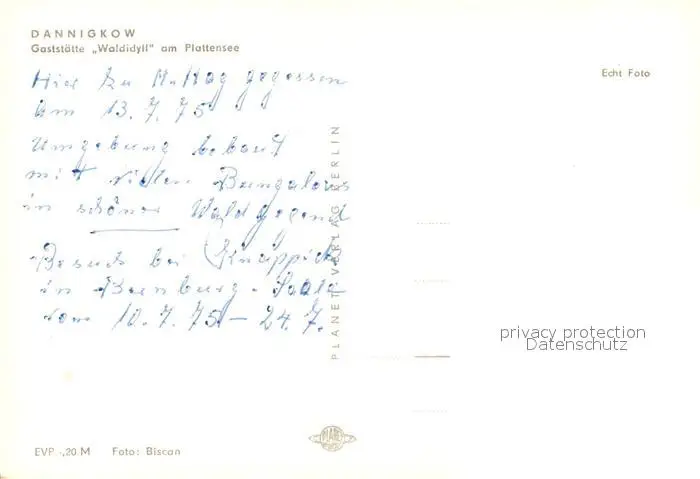 DANNIGKOW
Gaststätte „Waldidyll" am Plattensee
Echt Foto
Hier zu Mittag gegessen
am 13.7.75
Umgebung bebaut
mit vielen Bungalows
in schöner Waldgegend
Besuch bei Knappick
in Bernburg - Saale
vom 10.7.75 - 24.7.
PLANET-VERLAG BERLIN
privacy protection
Datenschutz
PLANET
EVP -,20 M Foto: Biscan